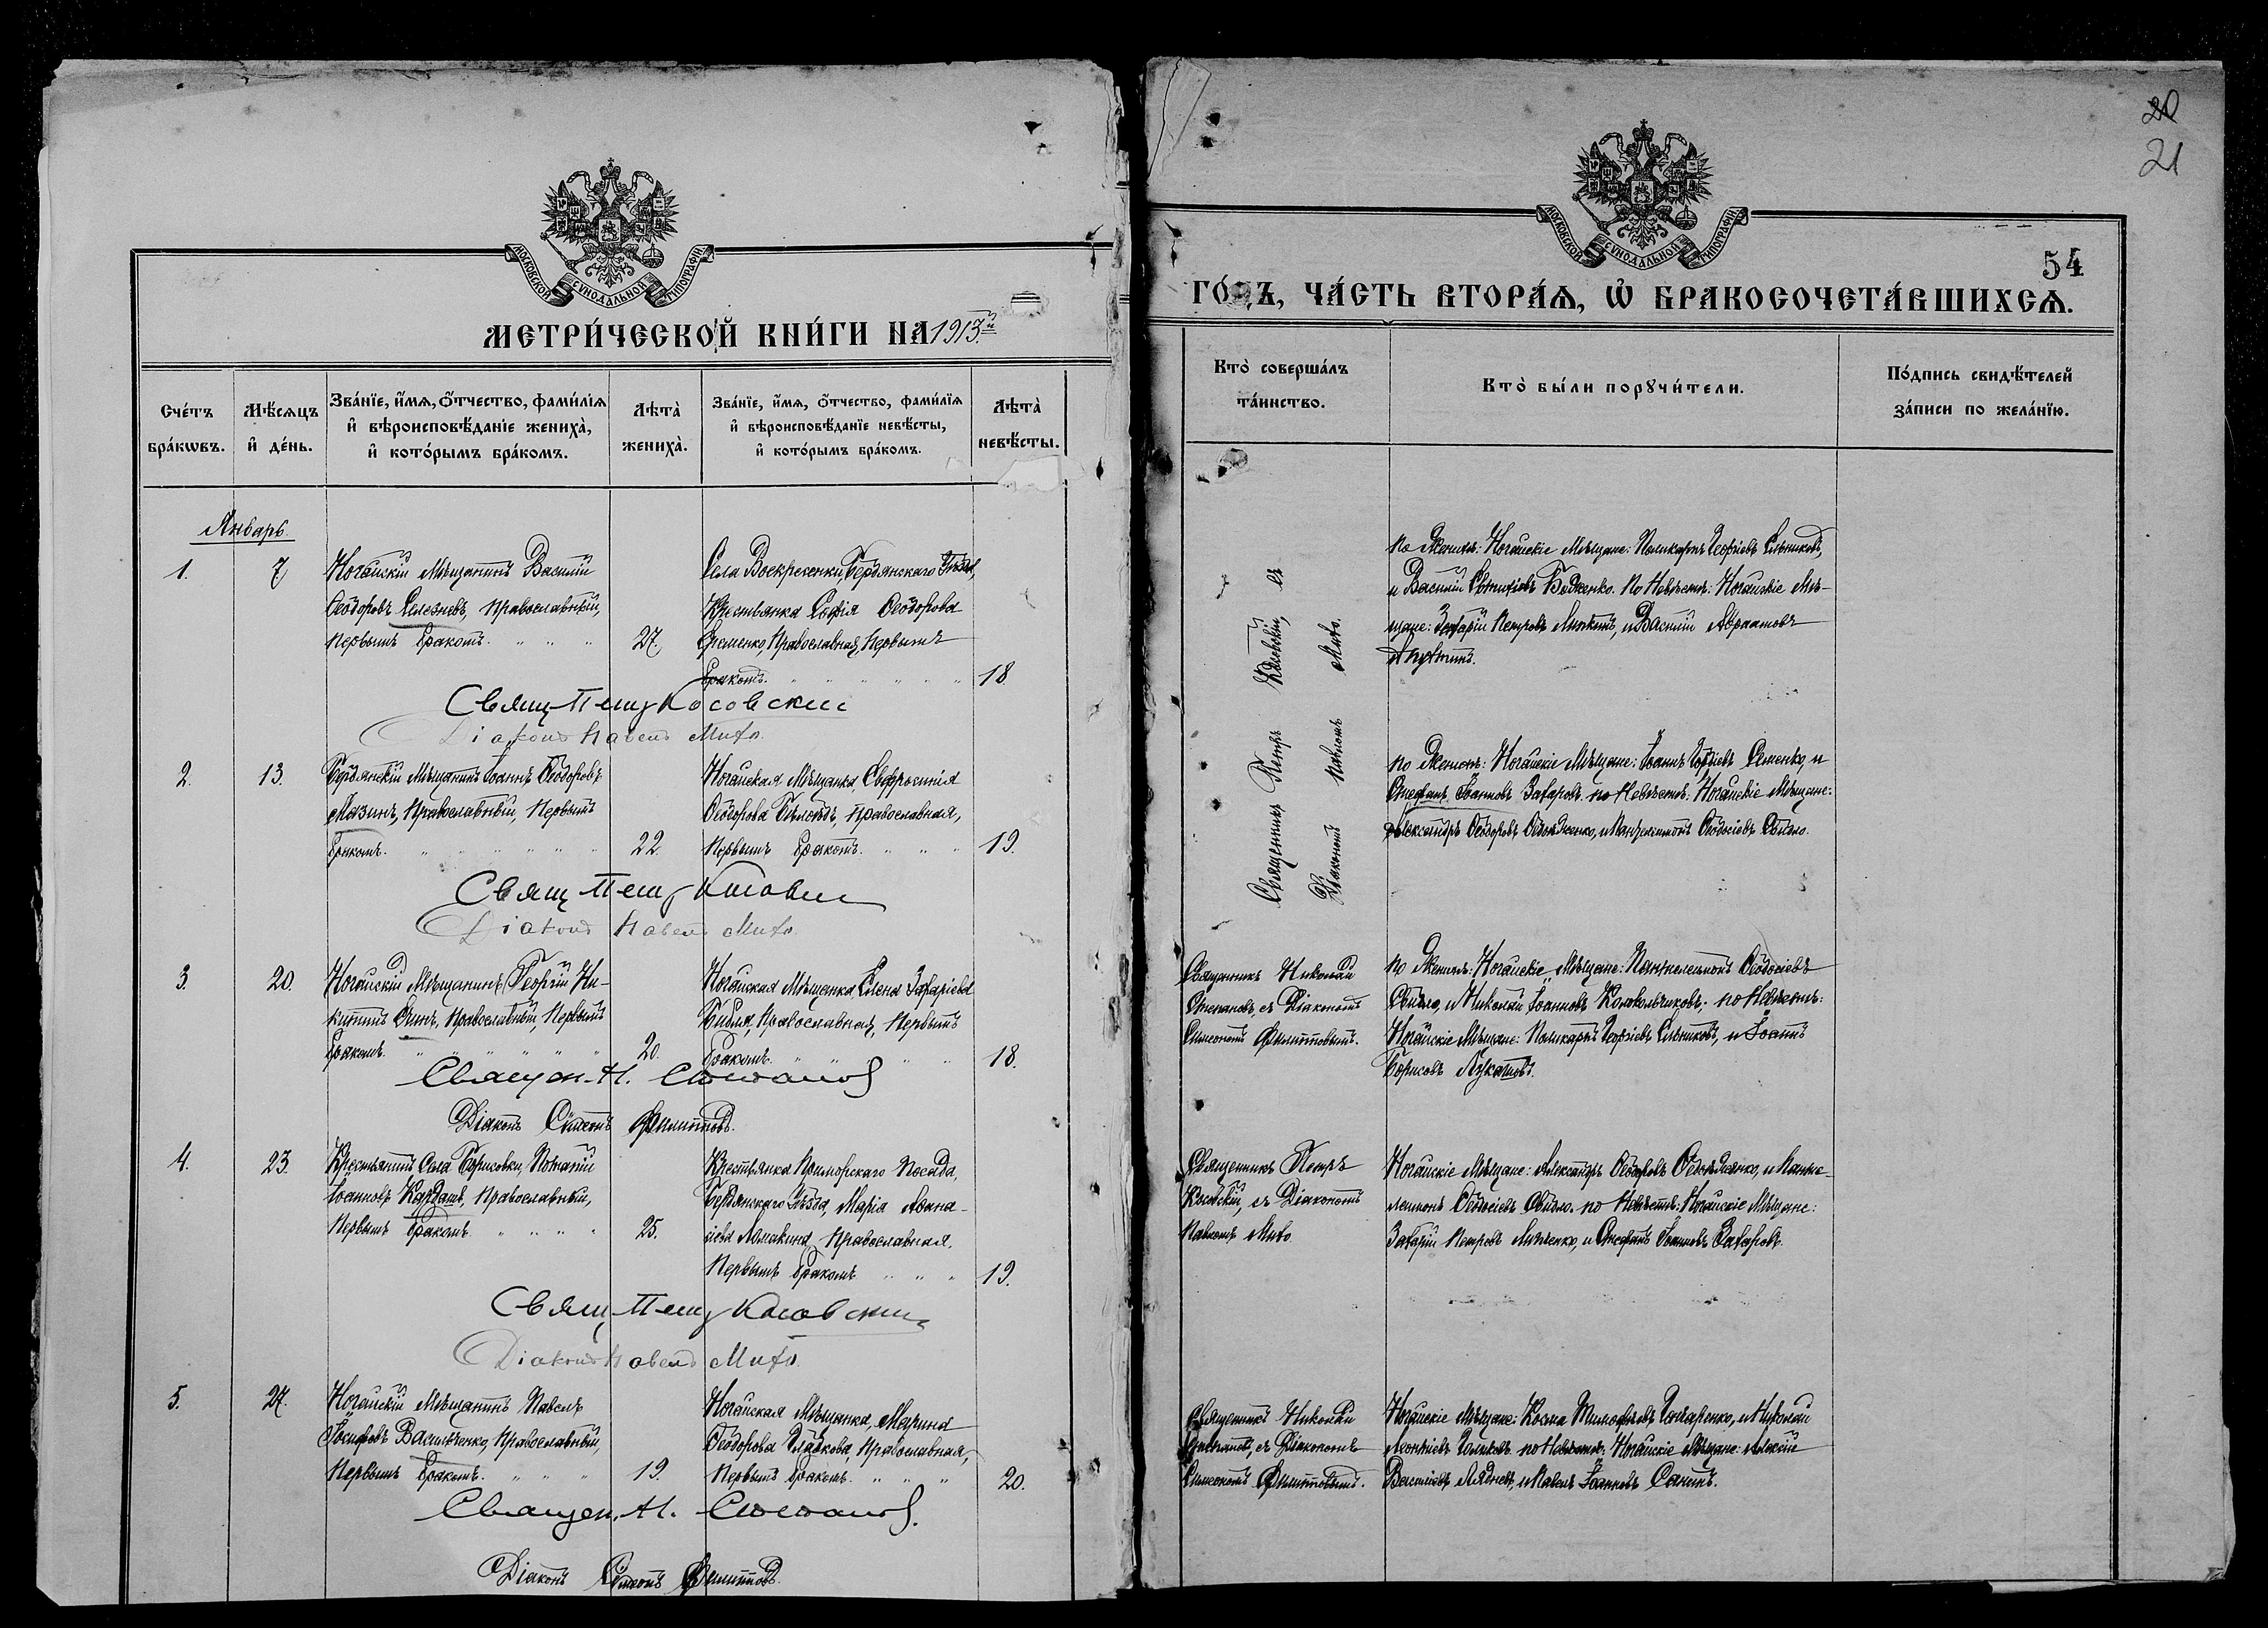 МОСКОВСКОЙ СѴНОДАЛЬНОЙ ТИПОГРАФІИ.
МЕТРИ́ЧЕСКОЙ КНИ́ГИ НА 1913й
Сче́тъ бра́кѡвъ.
Мѣ́сяцъ и҆ де́нь.
Зва́нїе, и҆́мя, ѻ҆́тчество, фами́лїя и҆ вѣроисповѣ́данїе жениха̀, и҆ кото́рымъ бра́комъ.
Лѣта̀ жениха̀.
Зва́нїе, и҆́мя, ѻ҆́тчество, фами́лїя и҆ вѣроисповѣ́данїе невѣ́сты, и҆ кото́рымъ бра́комъ.
Лѣта̀ невѣ́сты.
Январь.
1.
7
Ногайскій Мѣщанинъ Василій
Ѳеодоровъ Селезневъ, православный,
первымъ бракомъ.
27.
Села Воскресенки, Бердянскаго Уѣзда,
Крестьянка Софія Ѳеодорова
Еременко, Православная, Первымъ
бракомъ.
18.
Свящ. Петр Косовский
Діаконъ Павелъ Мито.
2.
13.
Бердянскій Мѣщанинъ Іоаннъ Ѳеодоровъ
Мазинъ, Православный, Первымъ
бракомъ.
22.
Ногайская Мѣщанка Евфросинія
Ѳеодорова православная,
Первымъ бракомъ.
19.
Свящ. Петр Косовский
Діаконъ Павелъ Мито.
3.
20.
Ногайскій Мѣщанинъ Георгій Ни-
китинъ православный, Первымъ
бракомъ.
20.
Ногайская Мѣщанка Елена Захаріева
Православная, Первымъ
бракомъ.
18.
Священ. Н. Степанов
Діаконъ Сѵмеонъ Филипповъ.
4.
23.
Крестьянинъ Села Борисовки, Потапій
Іоанновъ Кардашъ, православный,
Первымъ бракомъ.
25.
Крестьянка Приморскаго Посада,
Бердянскаго Уѣзда, Марія Аѳана-
сіева Ломакина, Православная,
Первымъ бракомъ
19.
Свящ. Петр Косовский
Діаконъ Павелъ Мито.
5.
27.
Ногайскій Мѣщанинъ Павелъ
Іосифовъ Васильченко, православный,
Первымъ бракомъ.
19.
Ногайская Мѣщанка, Марина
Ѳеодорова Гладкова, православная,
Первымъ бракомъ.
20.
Священ. Н. Степанов.
Діаконъ Сѵмеонъ Филипповъ.
20
21
МОСКОВСКОЙ СѴНОДАЛЬНОЙ ТИПОГРАФІИ.
54
ГО́ДЪ, ЧА́СТЬ ВТОРА́Я, Ѡ҆ БРАКОСОЧЕТА́ВШИХСЯ.
Кто̀ соверша́лъ та́инство.
Кто̀ бы́ли порꙋчи́тели.
По́дпись свидѣ́телей за́писи по жела́нїю.
Священникъ Петръ Косовскій, съ
Діакономъ Павломъ Мито.
По Женихѣ: Ногайскіе Мѣщане: Поликарпъ Георгіевъ Сѣнниковъ,
и Василій Боженко. По Невѣстѣ: Ногайскіе Мѣ-
щане: Захарій Петровъ и Василій Авраамовъ
по Женихѣ: Ногайскіе Мѣщане: Іоаннъ Георгіевъ Семенко, и
Стефанъ Іоанновъ Захаровъ. по Невѣстѣ: Ногайскіе Мѣщане:
Александръ Ѳеодоровъ и Пантелеимонъ Ѳеодосіевъ
Священникъ Николай
Степановъ, съ Діакономъ
Симеономъ Филипповымъ.
По Женихѣ: Ногайскіе Мѣщане: Пантелеимонъ Ѳеодосіевъ
и Николай Іоанновъ Колокольчиковъ; по Невѣстѣ:
Ногайскіе Мѣщане: Поликарпъ Георгіевъ Сѣнниковъ, и Іоаннъ
Борисовъ Лукашовъ.
Священникъ Петръ
Косовскій, съ Діакономъ
Павломъ Мито.
Ногайскіе Мѣщане: Александръ Ѳеодоровъ и Панте-
леимонъ Ѳеодосіевъ по Невѣстѣ: Ногайскіе Мѣщане:
Захарій Петровъ и Стефанъ Іоанновъ Захаровъ.
Священникъ Николай
Степановъ, съ Діакономъ
Симеономъ Филипповымъ.
Ногайскіе Мѣщане: Косма Тимоѳеевъ Гончаренко, и Николай
Леонтіевъ по Невѣстѣ: Ногайскіе Мѣщане: Алексій
Васильевъ и Павелъ Іоанновъ